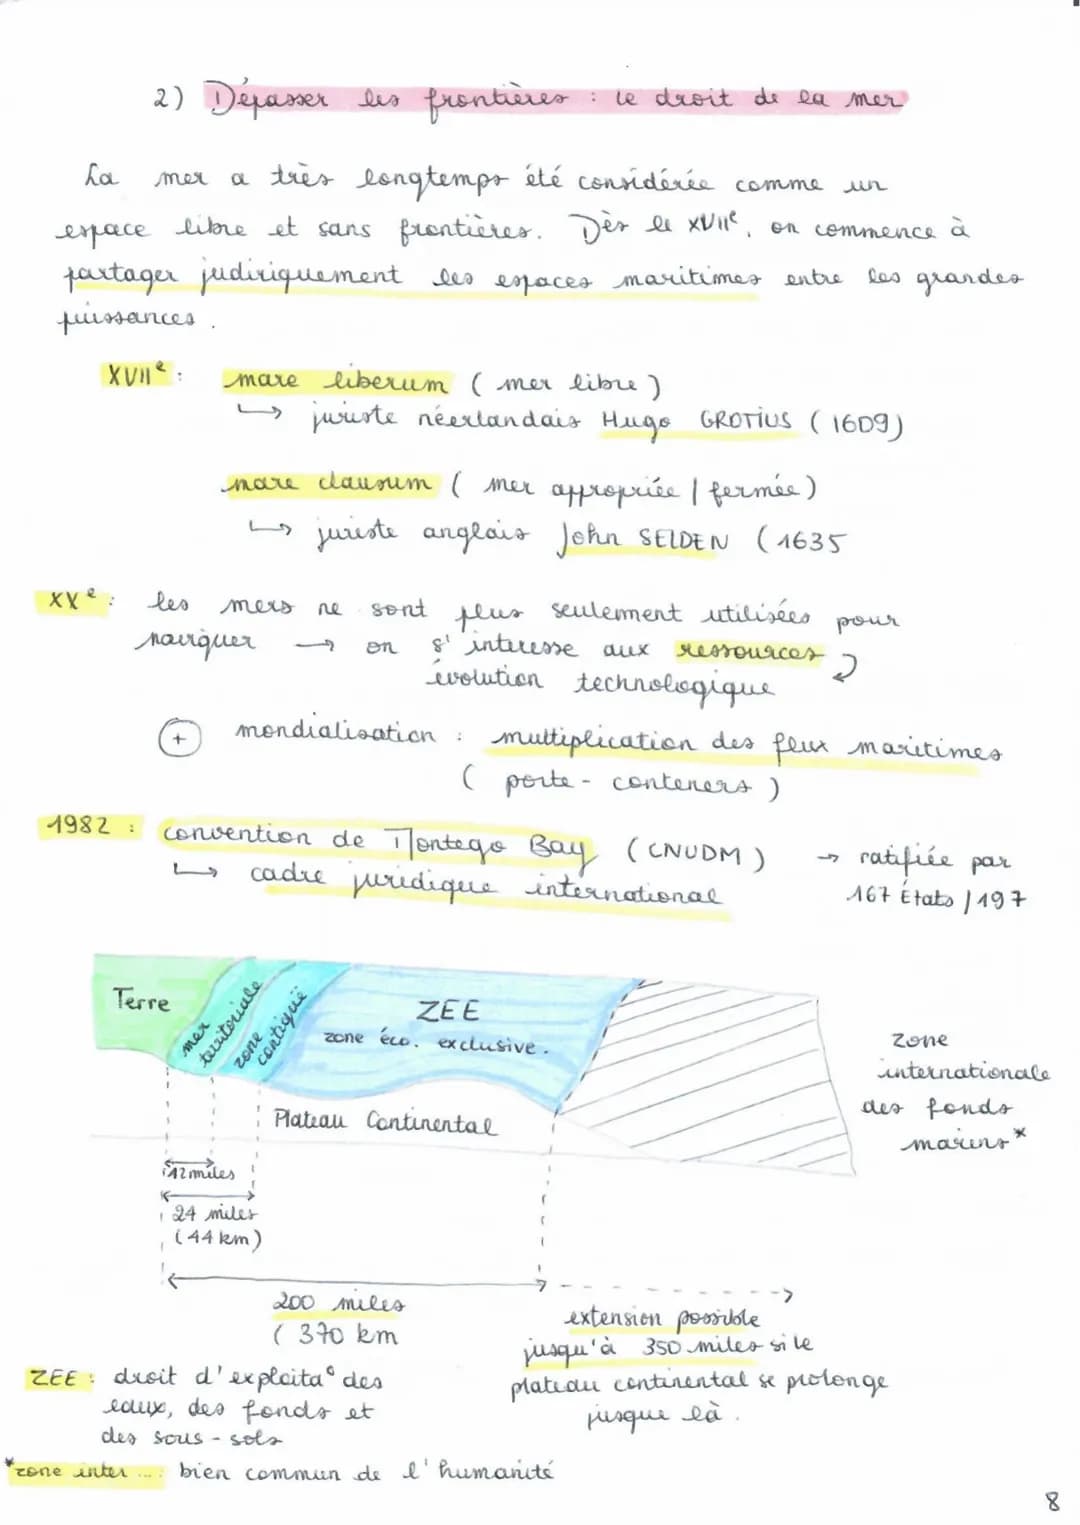 2) Dépasser les frontières : le droit de la mer
La mer a très longtemps été considérée comme un
espace libre et sans frontières. Dès le XVIIe, on commence à
partager judiriquement les espaces maritimes entre les grandes
puissances.
XVIIe : mare liberum ( mer libre )
↳ juriste néerlandais Hugo GROTIUS ( 1609)
mare clausum ( mer appropriée / fermée )
↳ juriste anglais John SELDEN ( 1635
XXe : les mers ne sont plus seulement utilisées pour
naviguer → on s'interesse aux ressources
évolution technologique
+ mondialisation : multiplication des flux maritimes
( porte - conteners )
1982 : convention de Montego Bay ( CNUDM ) → ratifiée par
↳ cadre juridique international 167 États / 197
Terre
mer territoriale
zone contiguë
ZEE
zone éco. exclusive.
Plateau Continental
zone
internationale
des fonds
marins*
12 miles
24 miles
(44 km)
200 miles
( 370 km
extension possible
jusqu'à 350 miles si le
plateau continental se prolonge
jusque là.
ZEE : droit d'exploita° des
eaux, des fonds et
des sous - sols
*zone inter ... : bien commun de l'humanité
8